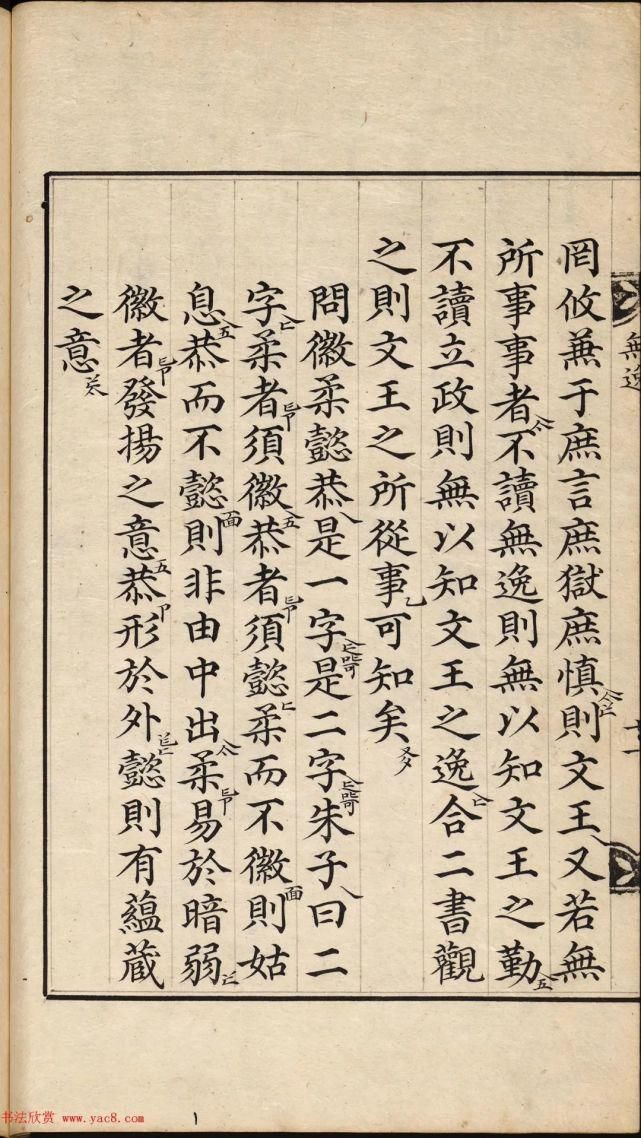 罔攸兼于庶言庶獄庶慎則文王又若無
所事事者不讀無逸則無以知文王之勤
不讀立政則無以知文王之逸合二書觀
之則文王之所從事可知矣
問徽柔懿恭是一字是二字朱子曰二
字柔者須徽恭者須懿柔而不徽則姑
息恭而不懿則非由中出柔易於暗弱
徽者發揚之意恭形於外懿則有蘊蔵
之意
無逸
书法欣赏 www.yac8.com